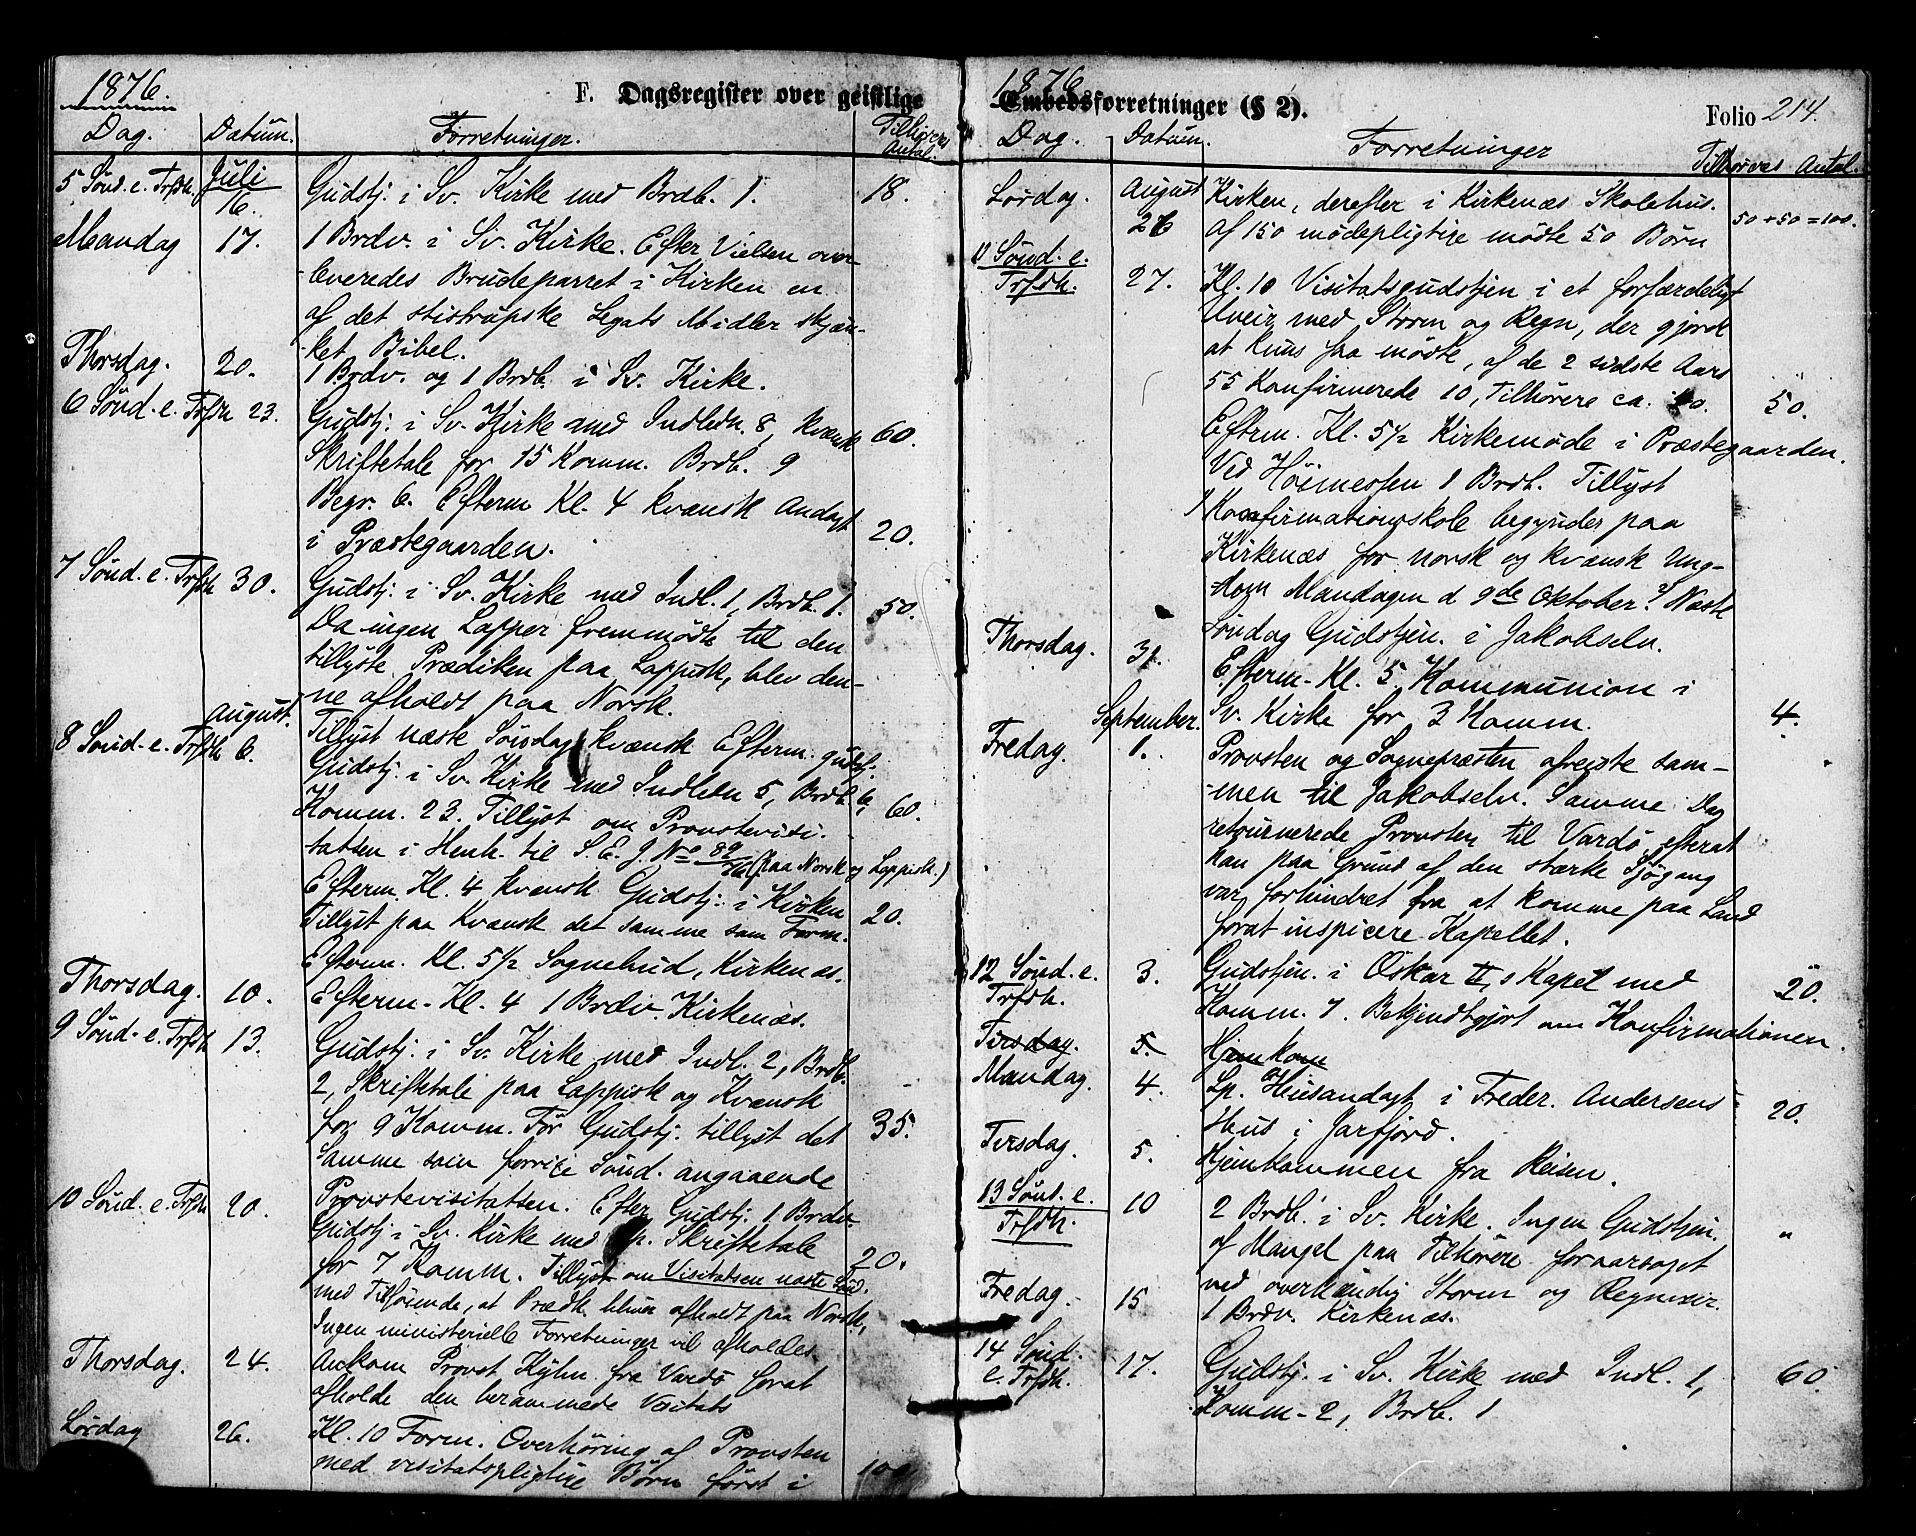 1876.
F. Dagsregister over geistlige
Dag. Datum. Forretninger. Tilhøreres Antal.
5 Sønd. e. Trfdh. Juli 16. Gudstj. i Sv. Kirke med Brdb. 1. 18.
Mandag 17. 1 Brdv. i Sv. Kirke. Efter Vielsen over-
leveredes Brudeparret i Kirken en
af det stistrupske Legats Midler skjæn-
ket Bibel.
Thorsdag. 20. 1 Brdv. og 1 Brdb. i Sv. Kirke.
6 Sønd. e. Trfdh 23. Gudstj. i Sv. Kirke med Indledn. 8, kvænsk 60.
Skriftetale for 15 Komm. Brdb. 9
Begr. 6. Efterm Kl. 4 kvænsk Andagt
i Præstegaarden. 20.
7 Sønd. e. Trfdh 30. Gudstj. i Sv. Kirke med Indl. 1, Brdb. 1. 50.
Da ingen Lapper fremmødte til den
tillyste Prædiken paa Lappisk, blev den-
ne afholdt paa Norsk.
Tillyst næste Søndag kvænsk Efterm. gudstj.
8 Sønd. e. Trfdh August. 6. Gudstj. i Sv. Kirke med Indledn 5, Brdb. 6,
Komm. 23. Tillyst om Provstevisi- 60.
tatsen i Henh. til S. E. J. No 89/76 (paa Norsk og Lappisk.)
Efterm. Kl. 4 kvænsk Gudstj. i Kirken
Tillyst paa Kvænsk det samme som Form. 20.
Efterm. Kl. 5 1/2 Sognebud, Kirkenæs.
Thorsdag. 10. Efterm. Kl. 4 1 Brdv. Kirkenæs.
9 Sønd. e. Trfdh 13. Gudstj. i Sv. Kirke med Indl. 2, Brdb.
2, Skriftetale paa Lappisk og Kvænsk
for 9 Komm. Før Gudstj. tillyst det 35.
samme som forrige Sønd. angaaende
Provstevisitatsen. Efter Gudstj. 1 Brdv.
10 Sønd. e. Trfdh 20. Gudstj. i Sv. Kirke med Skriftetale
for 7 Komm. Tillyst om Visitatsen næste Sønd. 20.
med Tilføiende, at Prædk. bliver afholdt paa Norsk,
Ingen ministerielle Forretninger vil afholdes.
Thorsdag. 24. Ankom Provst Kyhn fra Vardø forat
afholde den berammede Visitats
Lørdag 26. Kl. 10 Form. Overhøring af Provsten
med visitatspligtige Børn først i 100.
1876
Embedsforretninger (§ 2).
Folio 214.
Dag. Datum. Forretninger Tilhøreres Antal.
Lørdag. August 26 Kirken, derefter i Kirkenæs Skolehus. 50 + 50 = 100.
Af 150 mødepligtige mødte 50 Børn
11 Sønd. e. Trfdh. 27. Kl. 10 Visitatsgudstjen i et forfærdeligt
Uveir med Storm og Regn, der gjorde
at kuns faa mødte, af de 2 sidste Aars
55 Konfirmerede 10, Tilhørere ca. 50. 50.
Efterm. Kl. 5 1/2 Kirkemøde i Præstegaarden.
Ved Høimessen 1 Brdb. Tillyst
1 Konfirmationsskole begynder paa
Kirkenæs for norsk og kvænsk Ung-
dom Mandagen d 9de Oktober. 2 Næste
Søndag Gudstjen. i Jakobselv.
Thorsdag. 31. Efterm. Kl. 5 Kommunion i
Sv. Kirke for 3 Komm. 4.
Fredag. September 1. Provsten og Sognepræsten afreiste sam-
men til Jakobselv. Samme Dag
retournerede Provsten til Vardø, efterat
han paa Grund af den stærke Sjøgang
var forhindret fra at komme paa Land
forat inspicere Kapellet.
12 Sønd. e. Trfdh. 3. Gudstjen. i Oskar II,s Kapel med 20.
Komm. 7. Bekjendtgjort om Konfirmationen.
Tirsdag. 5. Hjemkom
Mandag. 4. Lp. Husandagt i Freder. Andersens 20.
Hus i Jarfjord.
Tirsdag. 5. Hjemkommen fra Reisen.
13 Sønd. e. Trfdh. 10 2 Brdb. i Sv. Kirke. Ingen Gudstjen. "
af Mangel paa Tilhørere foraarsaget
ved overhændig Storm og Regnveir.
Fredag. 15 1 Brdv. Kirkenæs.
14 Sønd. e. Trfdh. 17. Gudstj. i Sv. Kirke med Indl. 1, 60.
Komm. 2, Brdb. 1